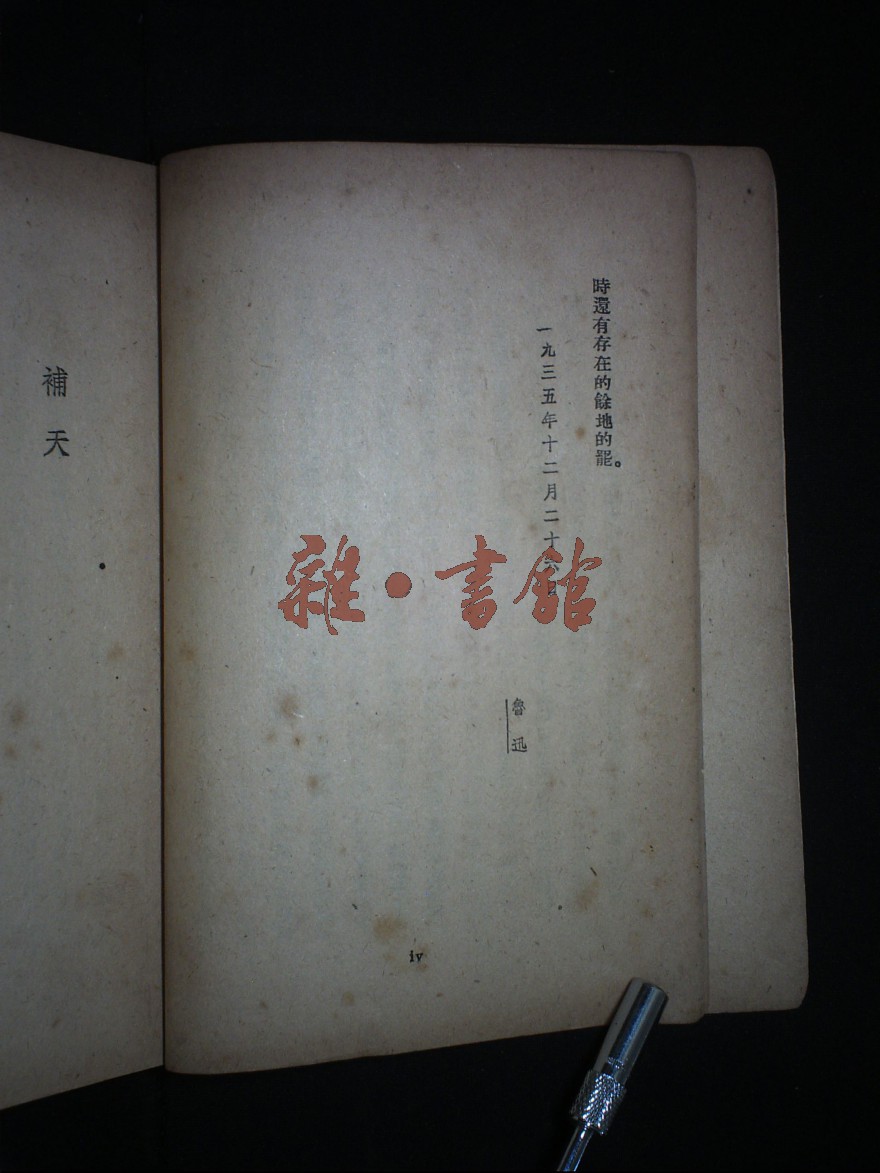 時還有存在的餘地的罷。
一九三五年十二月二十六日
魯迅
iv
補天
雜·書館